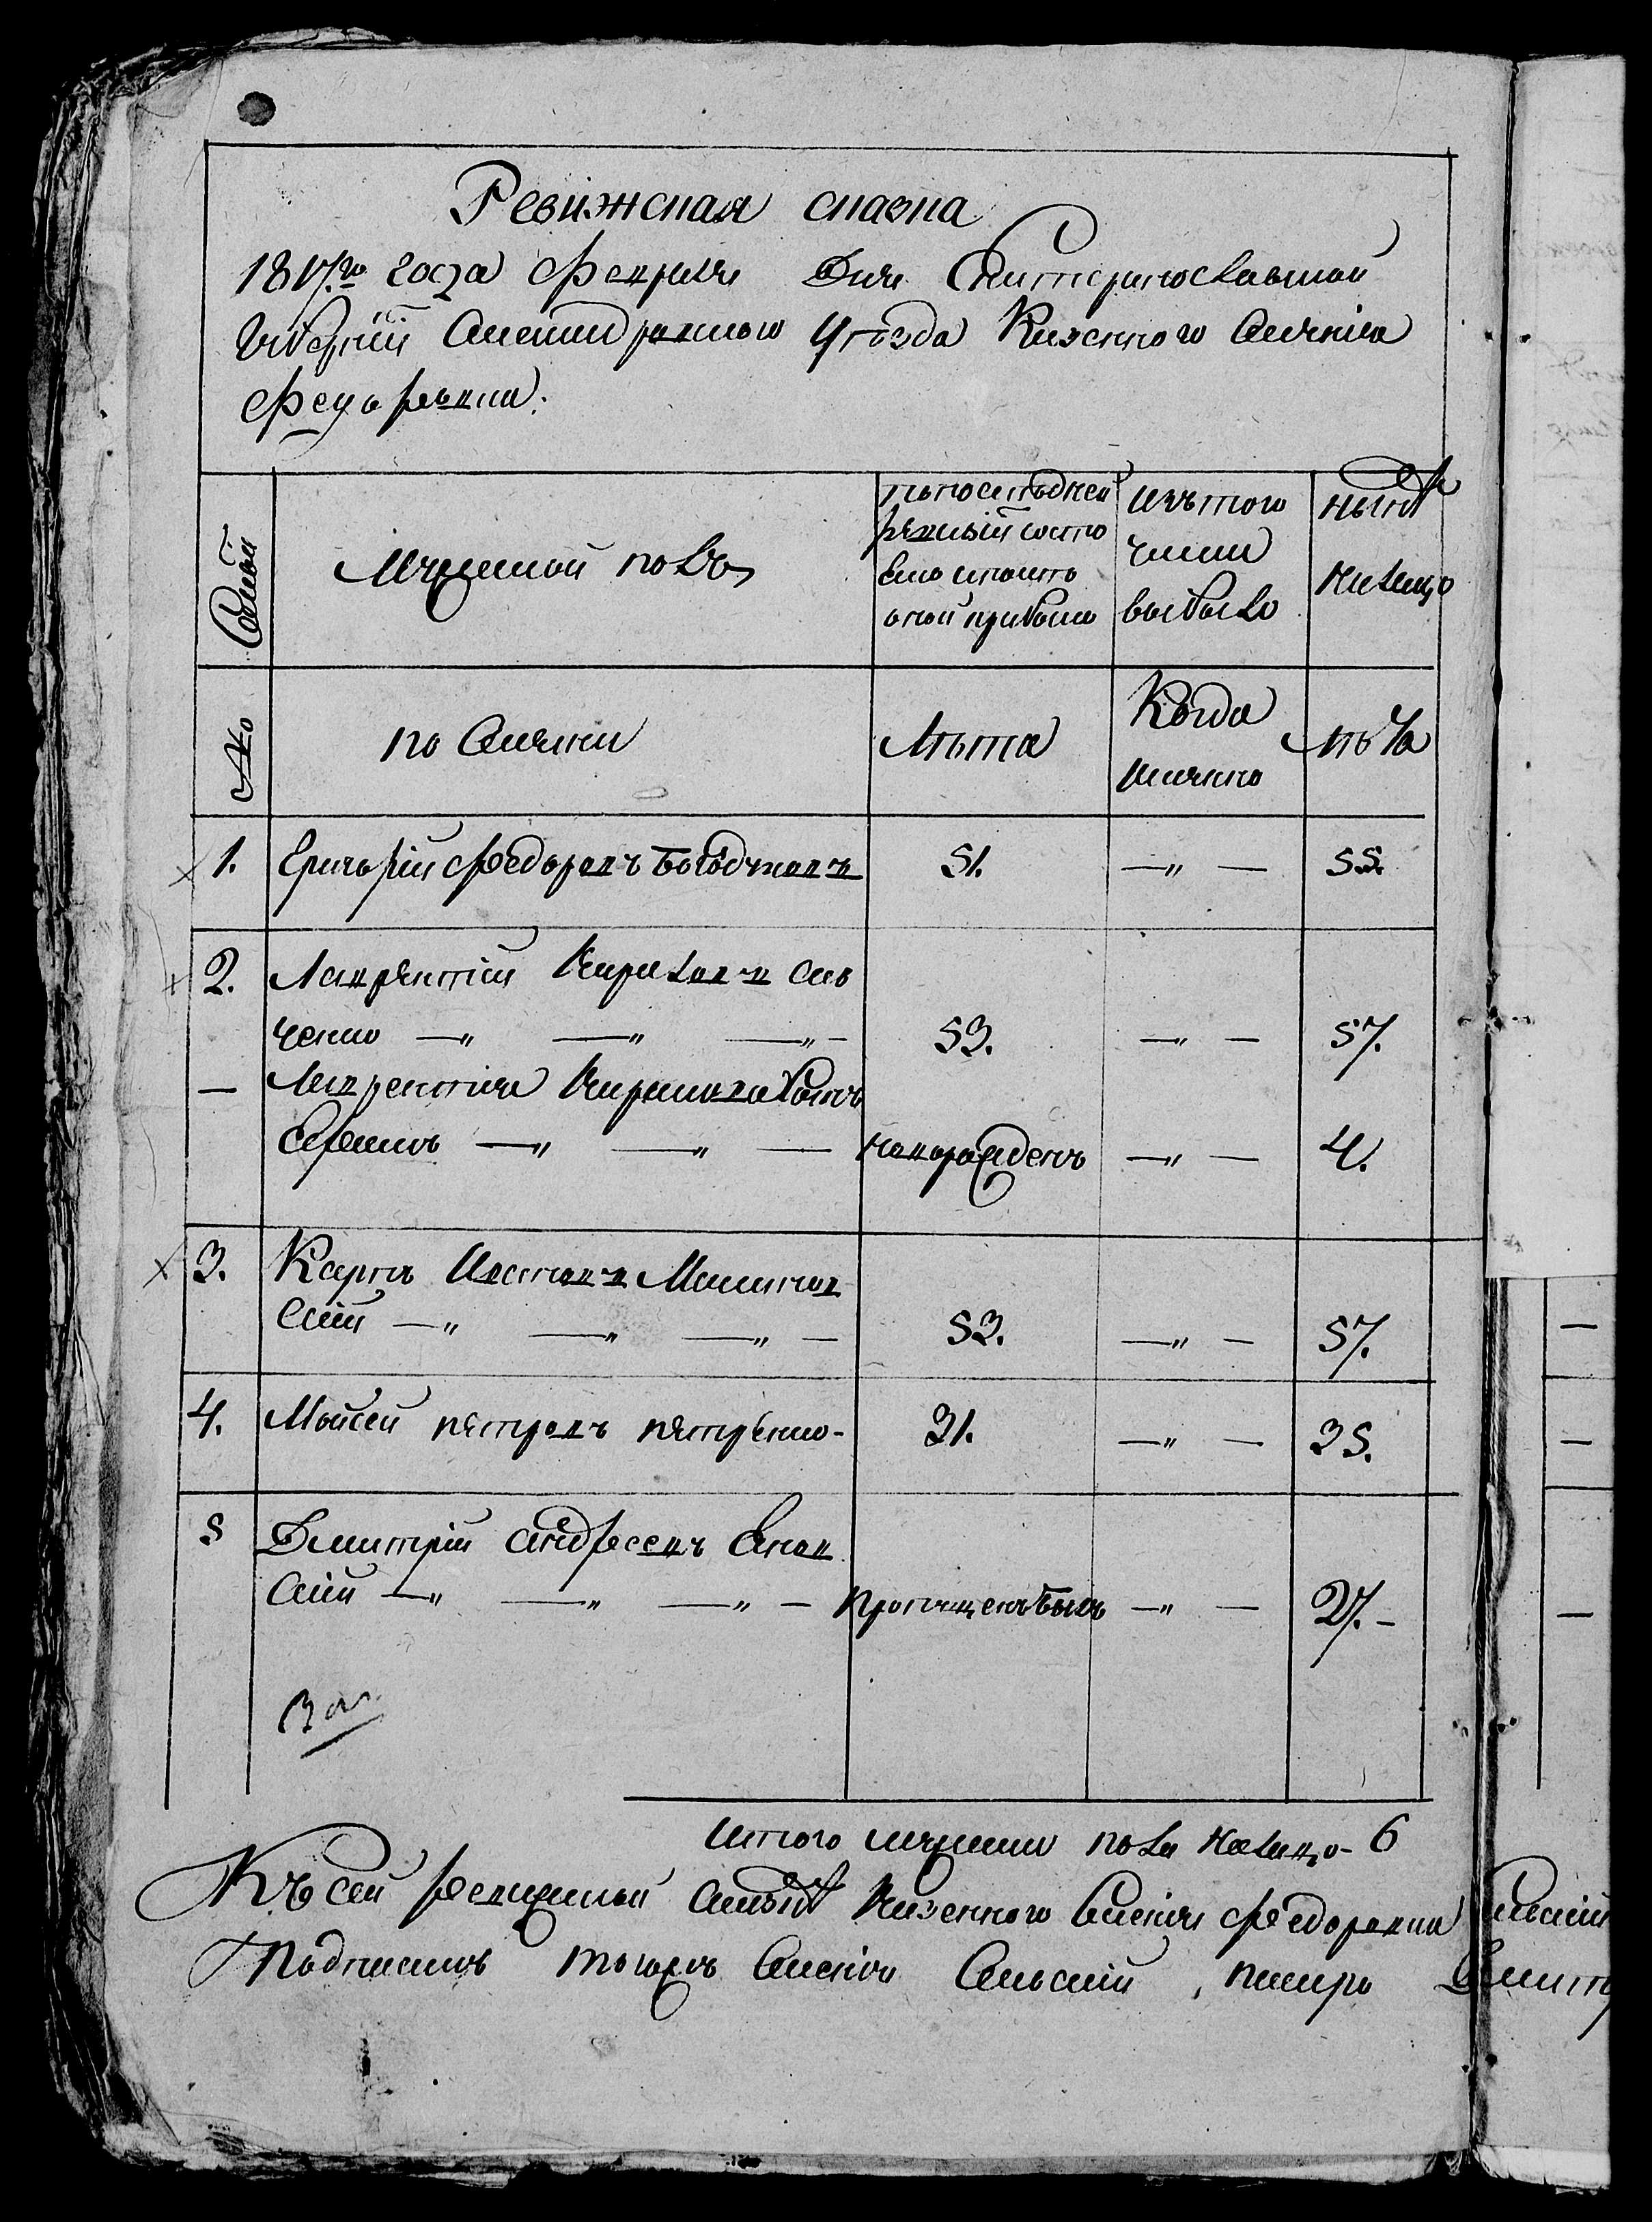 Ревижская сказка
1817го года февраля Дня Екатеринославской
Губернiй Александровского Уѣзда Казенного Селенiя
Федоровки.
Семьи
Мужеской полъ
попоследней ревизiи состояло ипослѣ оной прибыло
Изътого числа выбыло
нынѣ налицо
№
по Селенiю
Лѣта
Когда имянно
лѣта
1. Григорiй Федоровъ Богодуховъ 51. —〃— 55.
2. Лаврентiй Кириловъ Сав
ченко —〃 —〃 —〃— 53. —〃— 57.
— Лаврентiя Кириловасынъ
Ерѣминъ —〃 —〃 — новорожденъ —〃— 4.
3. Карпъ Ивановъ Малинов
скiй —〃 —〃 —〃— 53. —〃— 57.
4. Мойсей петровъ петренко- 31. —〃— 35.
5 Дмитрiй андреевъ
скiй —〃 —〃 —〃— пропущенъбылъ —〃— 27.-
Итого мужеска пола налицо- 6
Къ сей ревижской сказкѣ Казенного Селенiя Федоровки
Подписалъ тогожъ Селенiя Сельскiй писарь